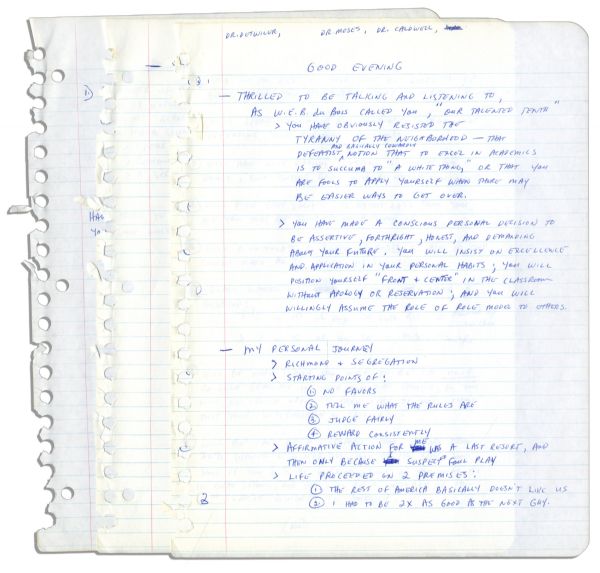 DR. DETWILER, DR MOSES, DR. CALDWELL,
GOOD EVENING
— THRILLED TO BE TALKING AND LISTENING TO,
AS W.E.B du Bois CALLED YOU, "OUR TALENTED TENTH"
> YOU HAVE OBVIOUSLY RESISTED THE
TYRANNY OF THE NEIGHBORHOOD — THAT
DEFEATIST, AND BASICALLY COWARDLY NOTION THAT TO EXCEL IN ACADEMICS
IS TO SUCCUMB TO "A WHITE THING," OR THAT YOU
ARE FOOLS TO APPLY YOURSELF WHEN THERE MAY
BE EASIER WAYS TO GET OVER.
> YOU HAVE MADE A CONSCIOUS PERSONAL DECISION TO
BE ASSERTIVE, FORTHRIGHT, HONEST, AND DEMANDING
ABOUT YOUR FUTURE. YOU WILL INSIST ON EXCELLENCE
AND APPLICATION IN YOUR PERSONAL HABITS; YOU WILL
POSITION YOURSELF "FRONT + CENTER" IN THE CLASSROOM
WITHOUT APOLOGY OR RESERVATION; AND YOU WILL
WILLINGLY ASSUME THE ROLE OF ROLE MODEL TO OTHERS.
— MY PERSONAL JOURNEY
> RICHMOND + SEGREGATION
> STARTING POINTS OF:
① NO FAVORS
② TELL ME WHAT THE RULES ARE
③ JUDGE FAIRLY
④ REWARD CONSISTENTLY
> AFFIRMATIVE ACTION FOR ME WAS A LAST RESORT, AND
THEN ONLY BECAUSE I SUSPECT FOUL PLAY
> LIFE PROCEEDED ON 2 PREMISES:
① THE REST OF AMERICA BASICALLY DOESN'T LIKE US
② I HAD TO BE 2X AS GOOD AS THE NEXT GUY.
①
HAS